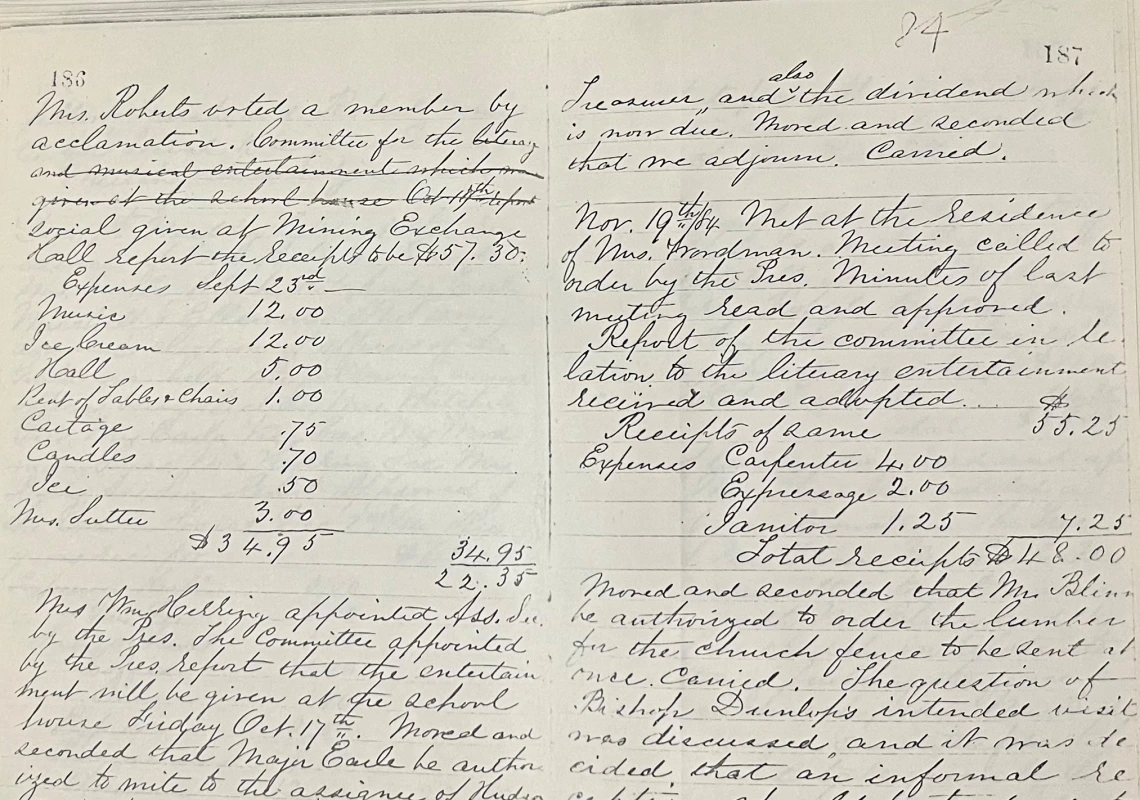 186
Mrs. Roberts voted a member by
acclamation. Committee for the literary
and musical entertainment which was
given at the school house Oct 17th report
social given at Mining Exchange
Hall report the receipts to be $57.30.
Expenses Sept 23rd —
Music 12.00
Ice Cream 12.00
Hall 5.00
Rent of Tables & Chairs 1.00
Cartage .75
Candles .70
Ice .50
Mrs. Sutter 3.00
$34.95 34.95
22.35
Mrs Wm Herring appointed Ass. Sec.
by the Pres. The Committee appointed
by the Pres. report that the entertain
ment will be given at the school
house Friday Oct. 17th. Moved and
seconded that Major Earle be author
ized to write to the assignee of Hudson
24
187
Treasurer, and also the dividend which
is now due. Moved and seconded
that we adjourn. Carried.
Nov. 19th/84 Met at the residence
of Mrs. Wordman. Meeting called to
order by the Pres. Minutes of last
meeting read and approved.
Report of the committee in re-
lation to the literary entertainment
received and adopted... $
Receipts of same 55.25
Expenses Carpenter 4.00
Expressage 2.00
Janitor 1.25 7.25
Total receipts $48.00
Moved and seconded that Mr. Blinn
be authorized to order the lumber
for the church fence to be sent at
once. Carried. The question of
Bishop Dunlop's intended visit
was discussed, and it was de
cided that an informal re